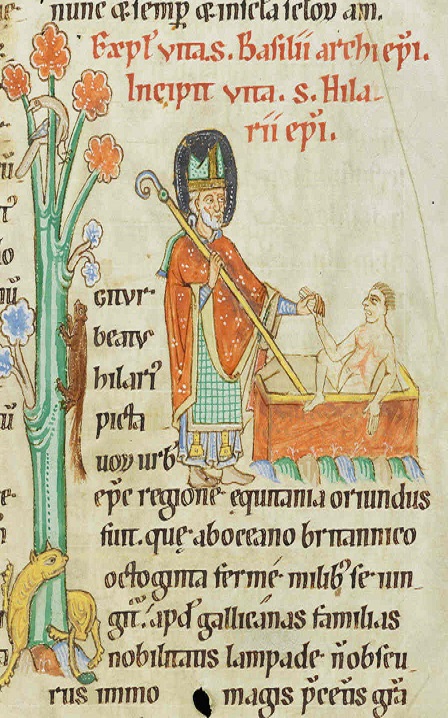 nunc & semp̄ & insecła
Expl̄ vita .S. Basilii archiep̄i.
Incipit vita . s. Hila-
rii ep̄i.
gitur
beatꝰ
hilariꝰ
picta
uoꝝ urb
ep̄c regione equitania oriundus
fuit. quę aboceano britannico
octoginta ferme milib; seiun
git᷑. apđ gallicanas familias
nobilitatis lampade n̄obscu
rus immo magis p̄celsꝰ gr̄a